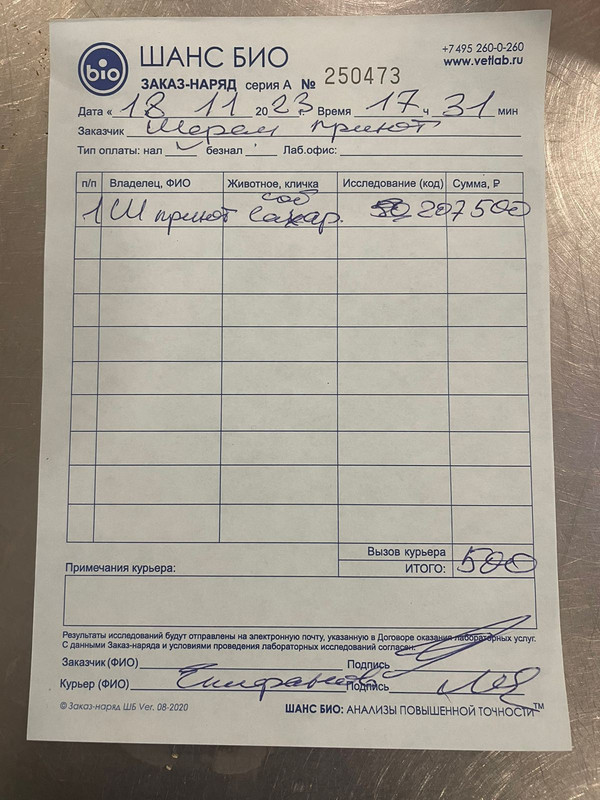 bio
ШАНС БИО
+7 495 260-0-260
www.vetlab.ru
ЗАКАЗ-НАРЯД серия А № 250473
Дата « 18 11 20 23 г. Время 17 ч 31 мин
Заказчик Шерем приют
Тип оплаты: нал безнал Лаб.офис:
п/п Владелец, ФИО Животное, кличка Исследование (код) Сумма, ₽
1 Ш приют соб Сахар. 207 500
Вызов курьера
ИТОГО: 500
Примечания курьера:
Результаты исследований будут отправлены на электронную почту, указанную в Договоре оказания лабораторных услуг.
С данными Заказ-наряда и условиями проведения лабораторных исследований согласен:
Заказчик (ФИО) Подпись
Курьер (ФИО) Подпись
© Заказ-наряд ШБ Ver. 08-2020
ШАНС БИО: АНАЛИЗЫ ПОВЫШЕННОЙ ТОЧНОСТИ™